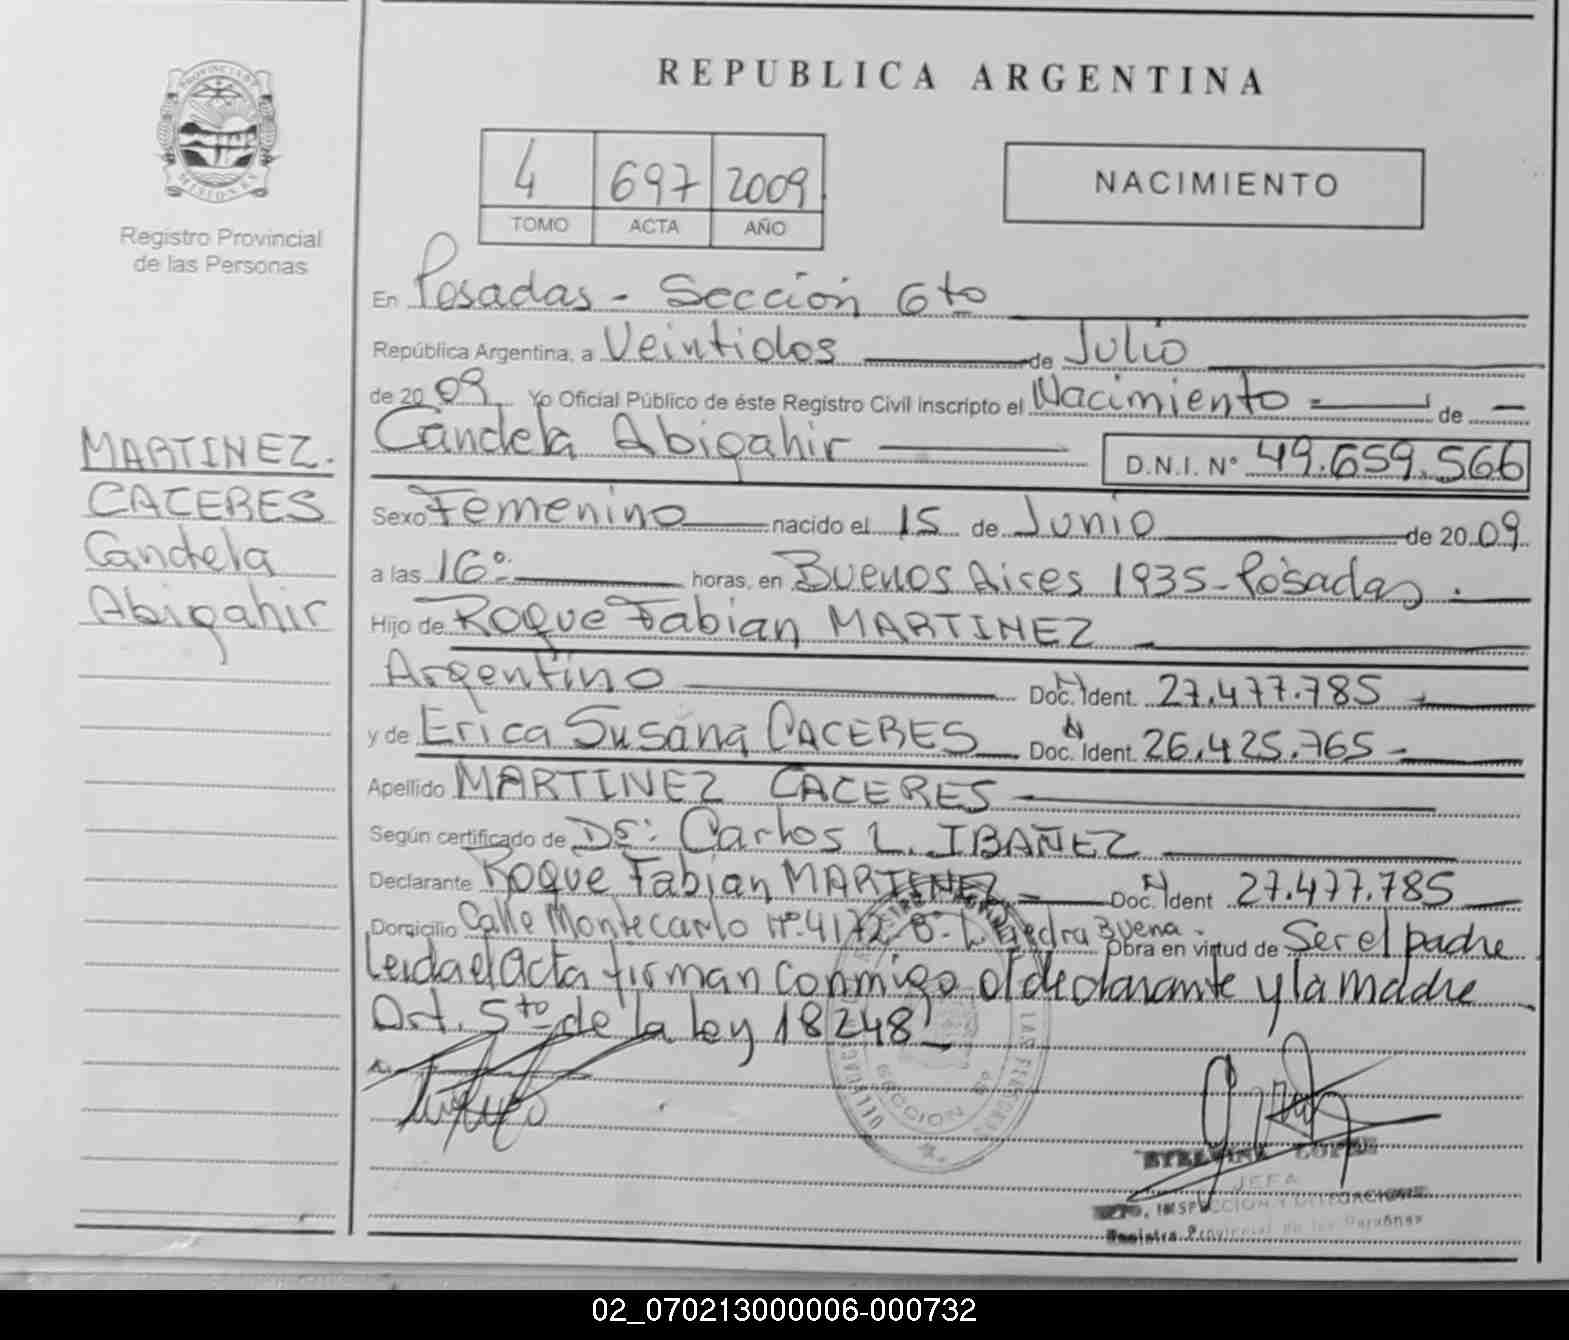 PROVINCIA DE
MISIONES
Registro Provincial
de las Personas
MARTINEZ.
CACERES
Candela
Abigahir
REPUBLICA ARGENTINA
4 697 2009
TOMO ACTA AÑO
NACIMIENTO
En Posadas - Sección 6to
República Argentina, a Veintidos de Julio
de 2009 Yo Oficial Público de éste Registro Civil inscripto el Nacimiento - de -
Candela Abigahir D.N.I. Nº 49.659.566
Sexo Femenino nacido el 15 de Junio de 2009
a las 16º horas, en Buenos Aires 1935 - Posadas.
Hijo de Roque Fabian MARTINEZ
Argentino Doc. Ident. 27.477.785
y de Erica Susana CACERES Doc. Ident. 26.425.765
Apellido MARTINEZ CACERES
Según certificado de Dr: Carlos L. IBAÑEZ
Declarante Roque Fabian MARTINEZ Doc. Ident 27.477.785
Domicilio Calle Montecarlo Nº 4172 Bº L. Piedra Buena. Obra en virtud de Ser el padre
Leida el Acta firman conmigo el declarante y la madre
Art. 5to de la ley 18248
SECCION
LAS PERSONAS
JEFA
DPTO. INSPECCION Y DELEGACIONES
Registro Provincial de las Personas
02_070213000006-000732